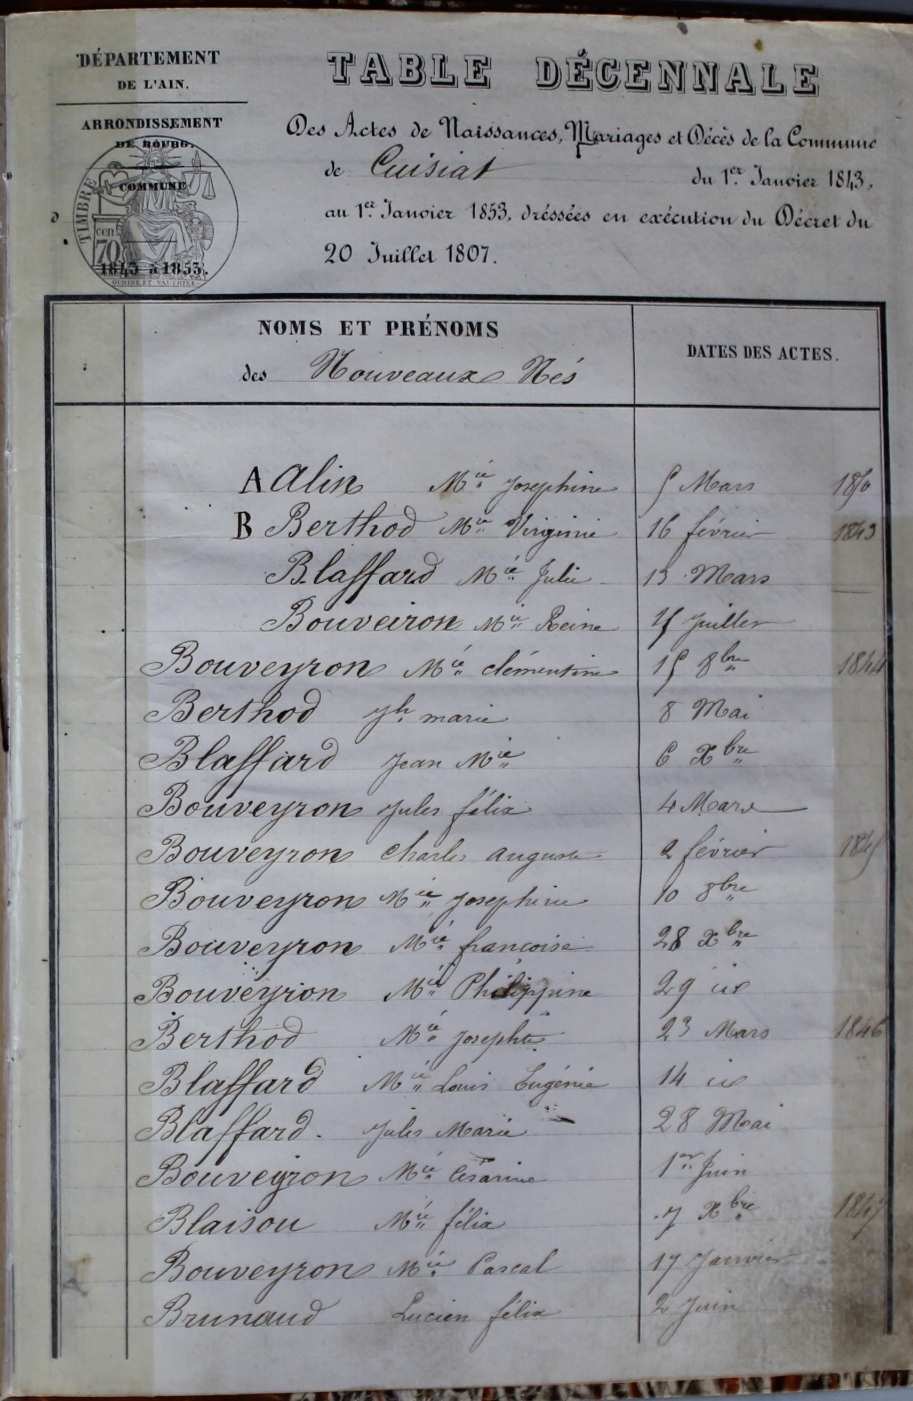 DÉPARTEMENT
DE L'AIN.
ARRONDISSEMENT
DE BOURG.
COMMUNE
TIMBRE
cen.
70
1843 à 1853.
TABLE DÉCENNALE
Des Actes de Naissances, Mariages et Décès de la Commune
de Cuisiat du 1er Janvier 1843,
au 1er Janvier 1853, dréssées en exécution du Décret du
20 Juillet 1807.
NOMS ET PRÉNOMS
des Nouveaux Nés
DATES DES ACTES.
A Alin Mie Josephine 5 Mars
B Berthod Mie Virginie 16 février 1843
Blaffard Mie Julie 13 Mars
Bouveiron Mie Reine Juillet
Bouveyron Mie clémentine 15 8bre 1844
Berthod Jh marie 8 Mai
Blaffard Jean Mie 6 Xbre
Bouveyron Jules félix 4 Mars
Bouveyron Charles auguste 2 février 1845
Bouveyron Mie Josephine 10 8bre
Bouveyron Mie françoise 28 Xbre
Bouveyron Mie Philippine 29 id
Berthod Mie Josephte 23 Mars 1846
Blaffard Mie Louis Eugénie 14 id
Blaffard. Jules Marie 28 Mai
Bouveyron Mie Césarine 1er Juin
Blaisou Mie félix 7 Xbre 1847
Bouveyron Mie Pascal 17 Janvier
Brunaud Lucien félix 2 Juin